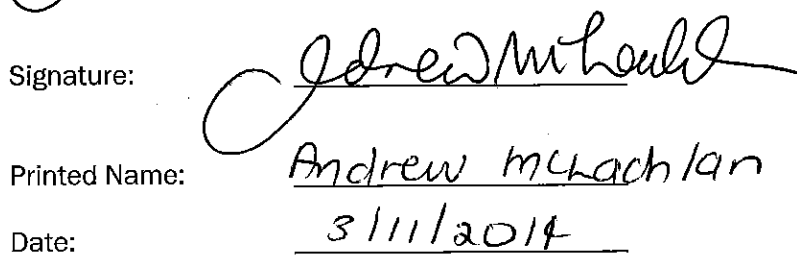 Signature: Andrew McLachlan
Printed Name: Andrew McLachlan
Date: 3/11/2014